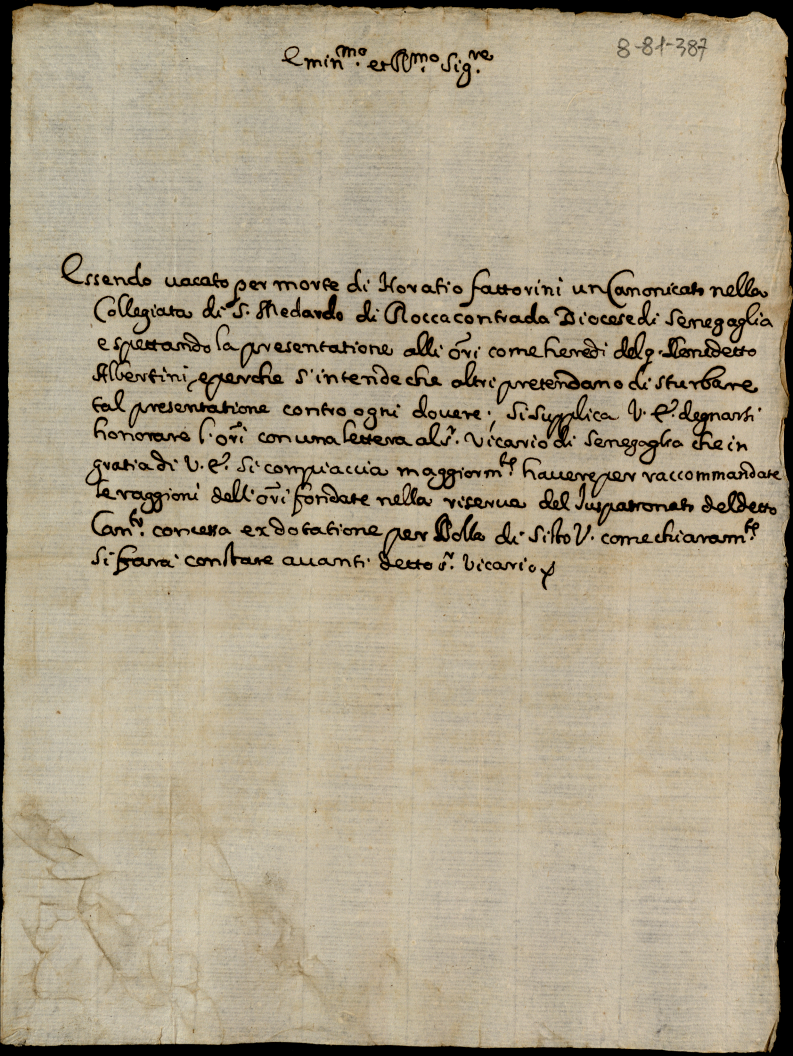 8-81-387
Emin.mo et R.mo Sig.re
Essendo uacato per morte di Horatio fattorini un Canonicato nella
Collegiata di S. Medardo di Roccacontrada Diocese di Senegaglia
e spettando la presentatione alli Ori come heredi del q. Benedetto
Albertini, e perche s'intende che altri pretendano disturbare
tal presentatione contro ogni douere; si supplica V. E. degnarsi
honorare l'Ori con una lettera al Sr. Vicario di Senegaglia che in
gratia di V. E. si compiaccia maggiorm.te hauere per raccommandate
le raggioni dell'Ori fondate nella riserua del Juspatronato del detto
Can.to concessa ex dotatione per Bolla di Sisto V. come chiaram.te
si farà constare auanti detto Sr. Vicario